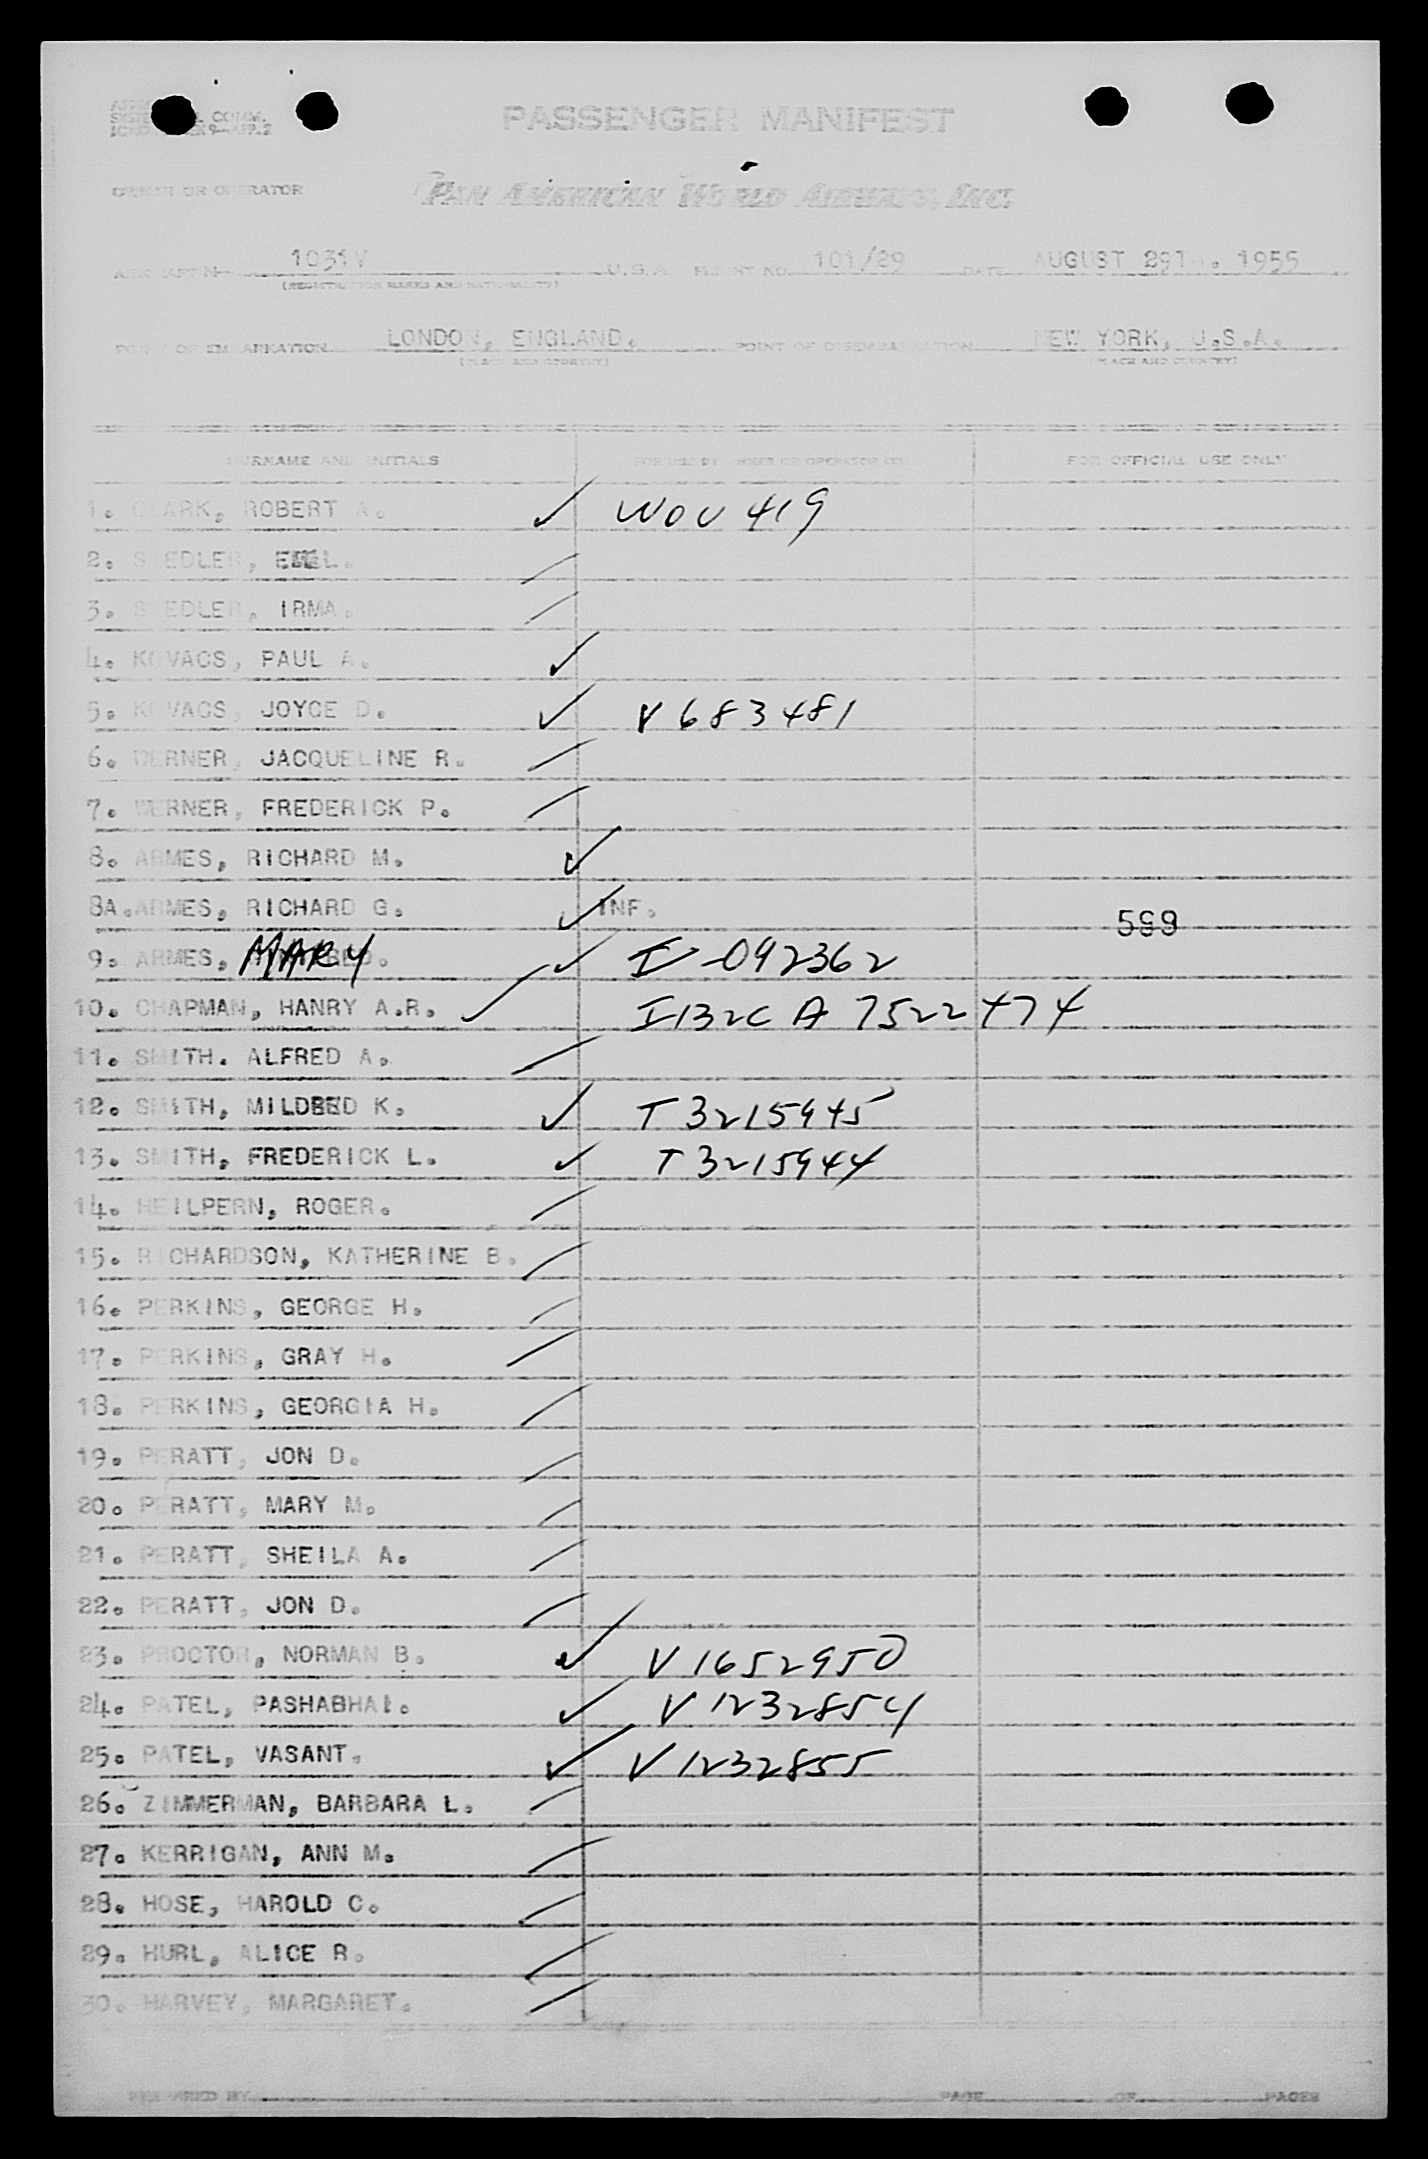 PASSENGER MANIFEST
OWNER OR OPERATOR PAN AMERICAN WORLD AIRWAYS, INC.
AIRCRAFT No 1031V U.S.A. FLIGHT NO. 101/29 DATE AUGUST 29T . 1955
(REGISTRATION MARKS AND NATIONALITY)
POINT OF EMBARKATION LONDON, ENGLAND. POINT OF DISEMBARKATION NEW YORK, U.S.A.
(PLACE AND COUNTRY) (PLACE AND COUNTRY)
SURNAME AND INITIALS FOR USE BY OWNER OR OPERATOR ONLY FOR OFFICIAL USE ONLY
1. CLARK, ROBERT A. ✓ WOU 419
2. S EDLER, E L.
3. S EDLER, IRMA.
4. KOVACS, PAUL A. ✓
5. KOVACS, JOYCE D. ✓ V683481
6. WERNER, JACQUELINE R.
7. WERNER, FREDERICK P.
8. ARMES, RICHARD M. ✓
8A. ARMES, RICHARD G. ✓ INF.
599
9. ARMES, MARY ✓ IV-092362
10. CHAPMAN, HANRY A.R. ✓ I132C A 7522474
11. SMITH. ALFRED A.
12. SMITH, MILDRED K. ✓ T3215945
13. SMITH, FREDERICK L. ✓ T3215944
14. HEILPERN, ROGER.
15. RICHARDSON, KATHERINE B.
16. PERKINS, GEORGE H.
17. PERKINS, GRAY H.
18. PERKINS, GEORGIA H.
19. PERATT, JON D.
20. PERATT, MARY M.
21. PERATT, SHEILA A.
22. PERATT, JON D.
23. PROCTOR, NORMAN B. ✓ V1652950
24. PATEL, PASHABHAI. ✓ V1232854
25. PATEL, VASANT. ✓ V1232855
26. ZIMMERMAN, BARBARA L.
27. KERRIGAN, ANN M.
28. HOSE, HAROLD C.
29. HURL, ALICE R.
30. HARVEY, MARGARET.
PREPARED BY PAGE OF PAGES